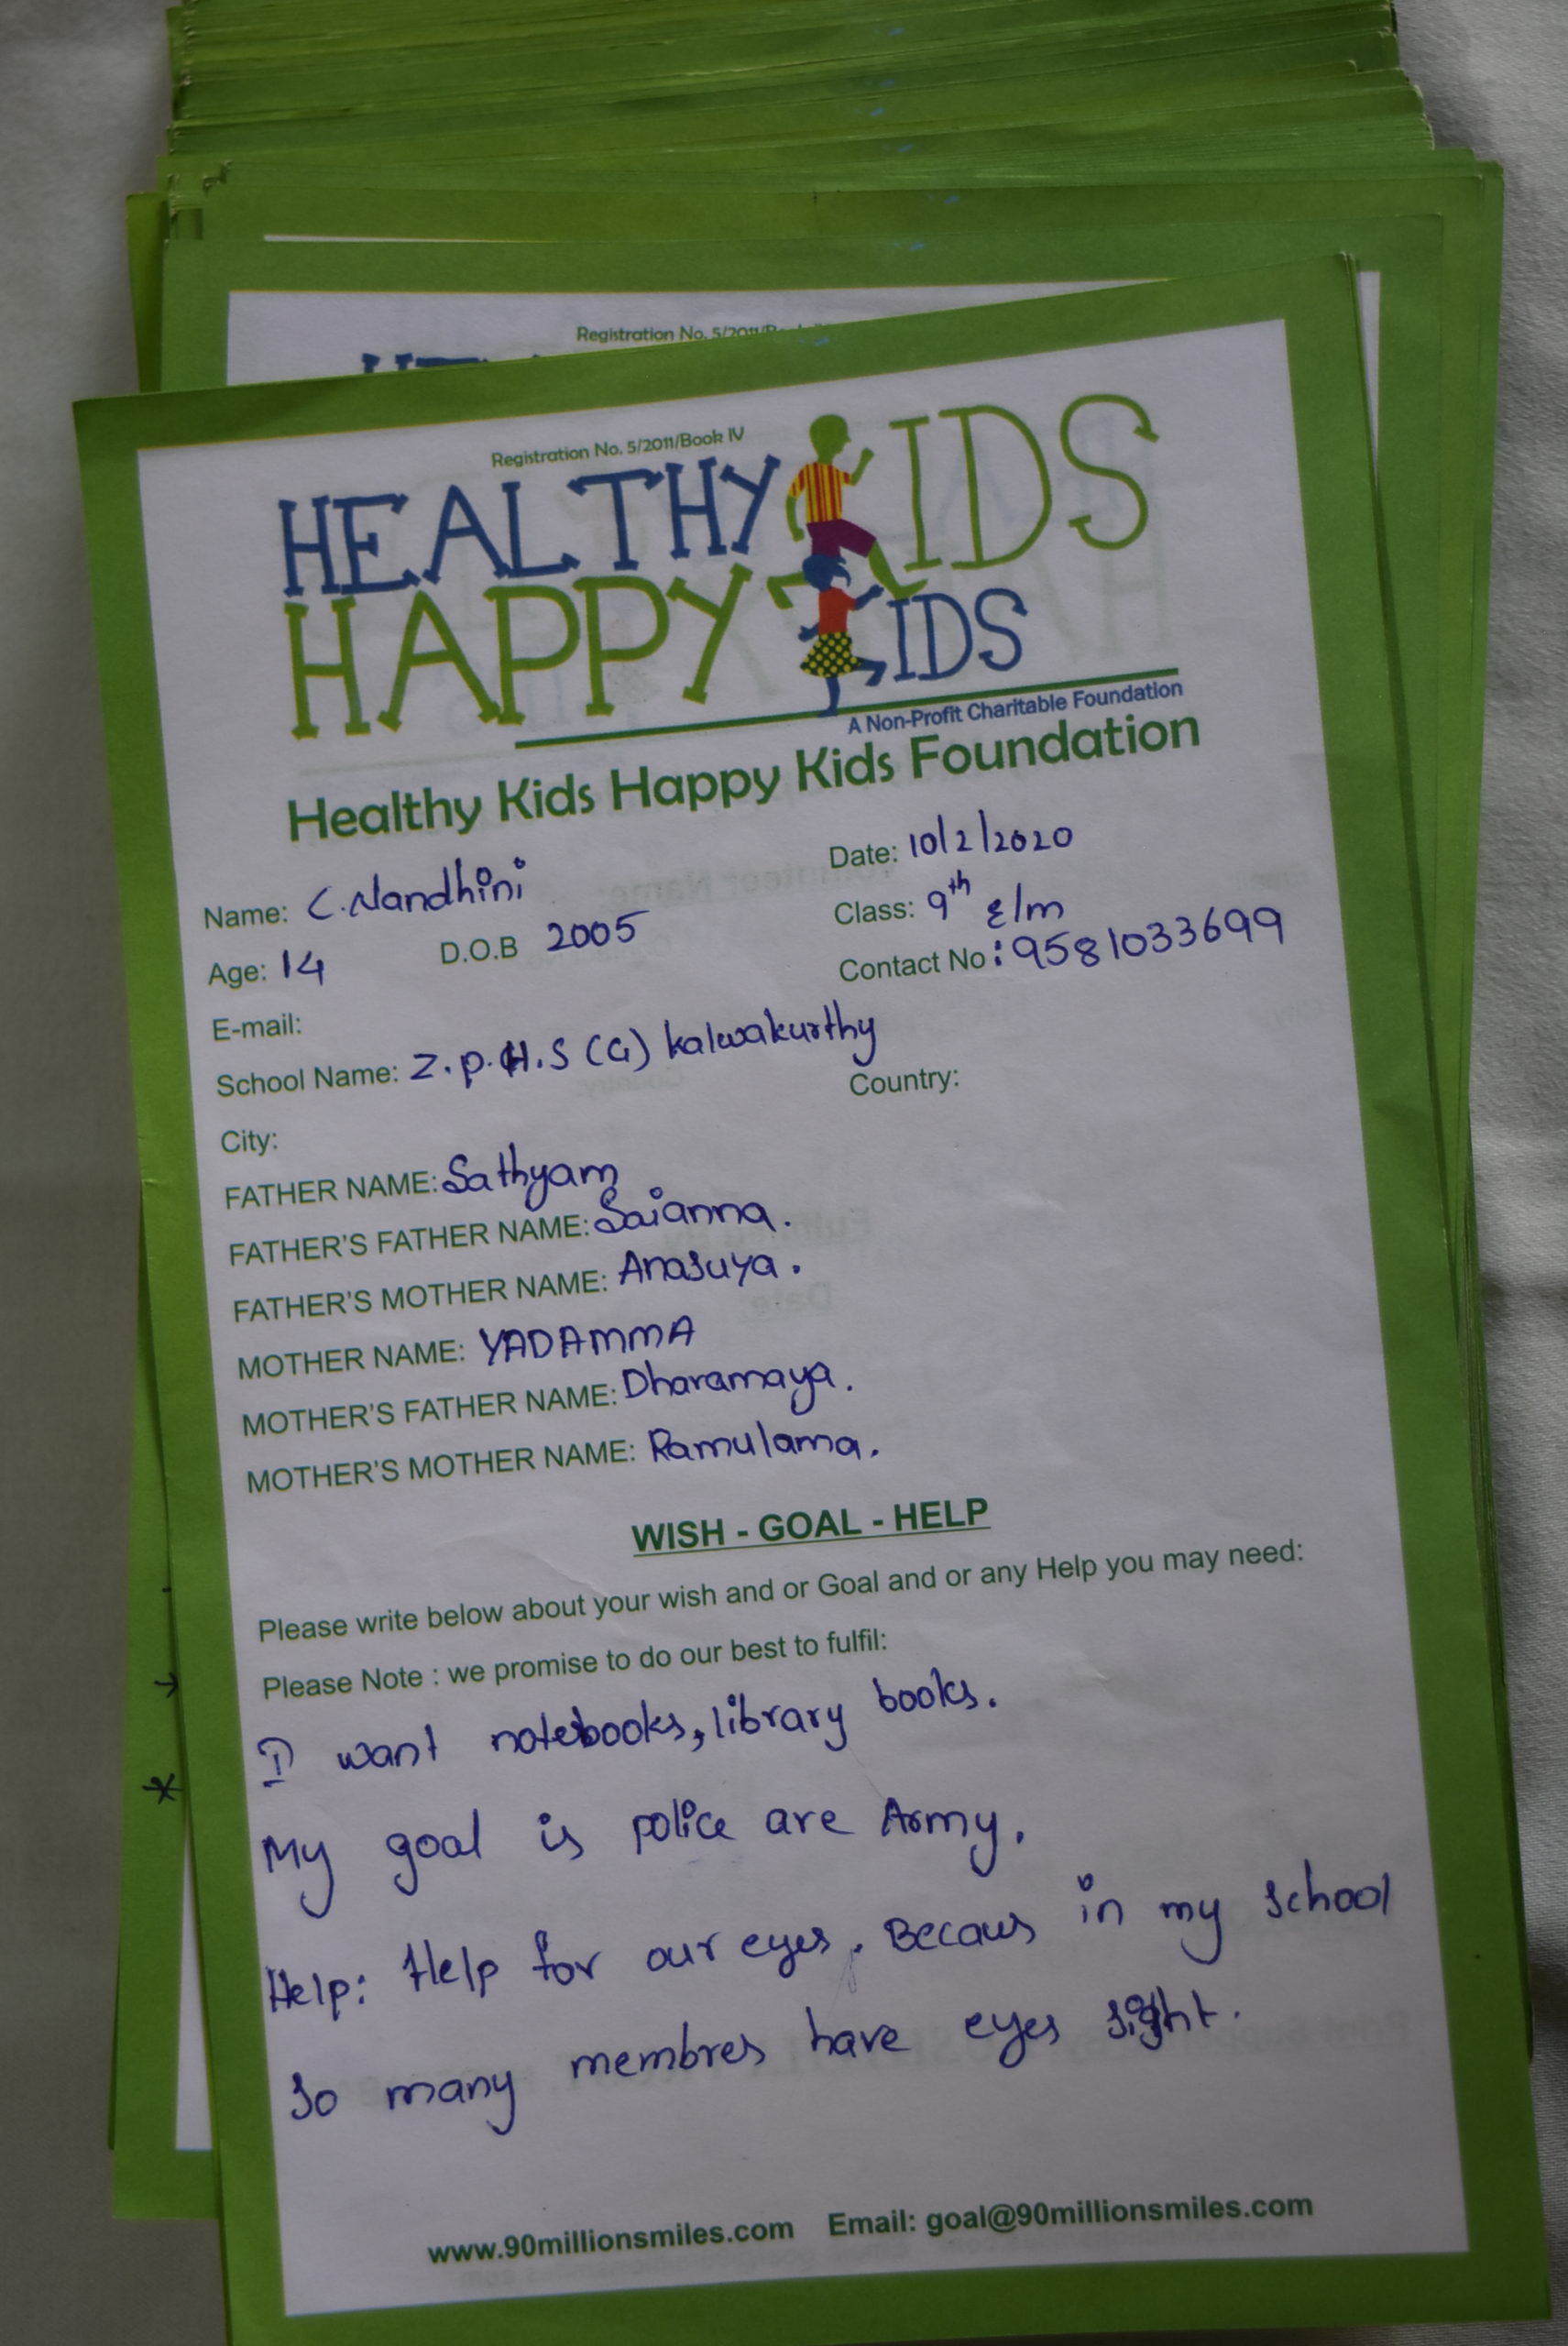 Registration No. 5/2011/
Registration No. 5/2011/Book IV
HEALTHY KIDS
HAPPY KIDS
A Non-Profit Charitable Foundation
Healthy Kids Happy Kids Foundation
Name: C.Nandhini Date: 10/2/2020
Age: 14 D.O.B 2005 Class: 9th E/m
E-mail: Contact No: 9581033699
School Name: Z.p.H.S (G) kalwakurthy
City: Country:
FATHER NAME: Sathyam
FATHER'S FATHER NAME: Saianna.
FATHER'S MOTHER NAME: Anasuya.
MOTHER NAME: YADAMMA
MOTHER'S FATHER NAME: Dharamaya.
MOTHER'S MOTHER NAME: Ramulama.
WISH - GOAL - HELP
Please write below about your wish and or Goal and or any Help you may need:
Please Note : we promise to do our best to fulfil:
I want notebooks, library books.
My goal is police are Army.
Help: Help for our eyes. Becaus in my school
so many membres have eyes sight.
www.90millionsmiles.com Email: goal@90millionsmiles.com